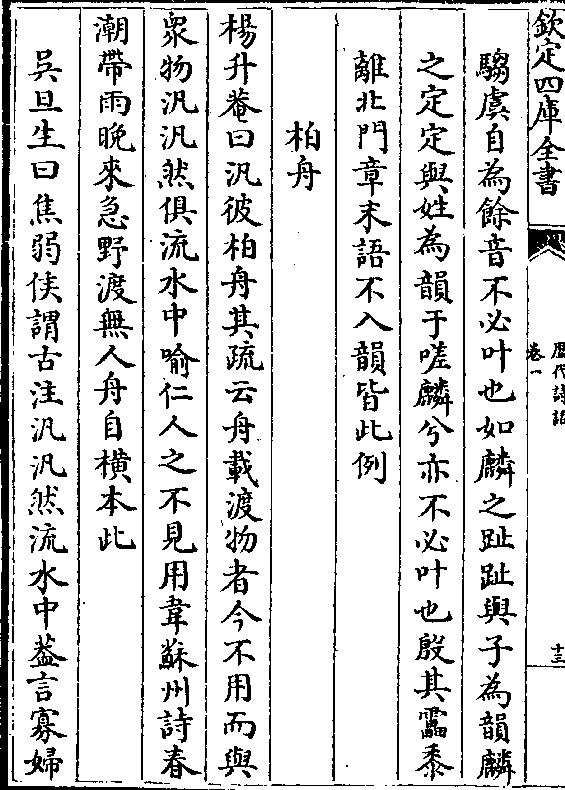 欽定四庫全書
歷代詩話
卷一
十三
騶虞自為餘音不必叶也如麟之趾趾與子為韻麟
之定定與姓為韻于嗟麟兮亦不必叶也殷其靁黍
離北門章末語不入韻皆此例
柏舟
楊升菴曰汎彼柏舟其疏云舟載渡物者今不用而與
衆物汎汎然俱流水中喻仁人之不見用韋蘇州詩春
潮帶雨晚來急野渡無人舟自橫本此
吳旦生曰焦弱侯謂古注汎汎然流水中葢言寡婦